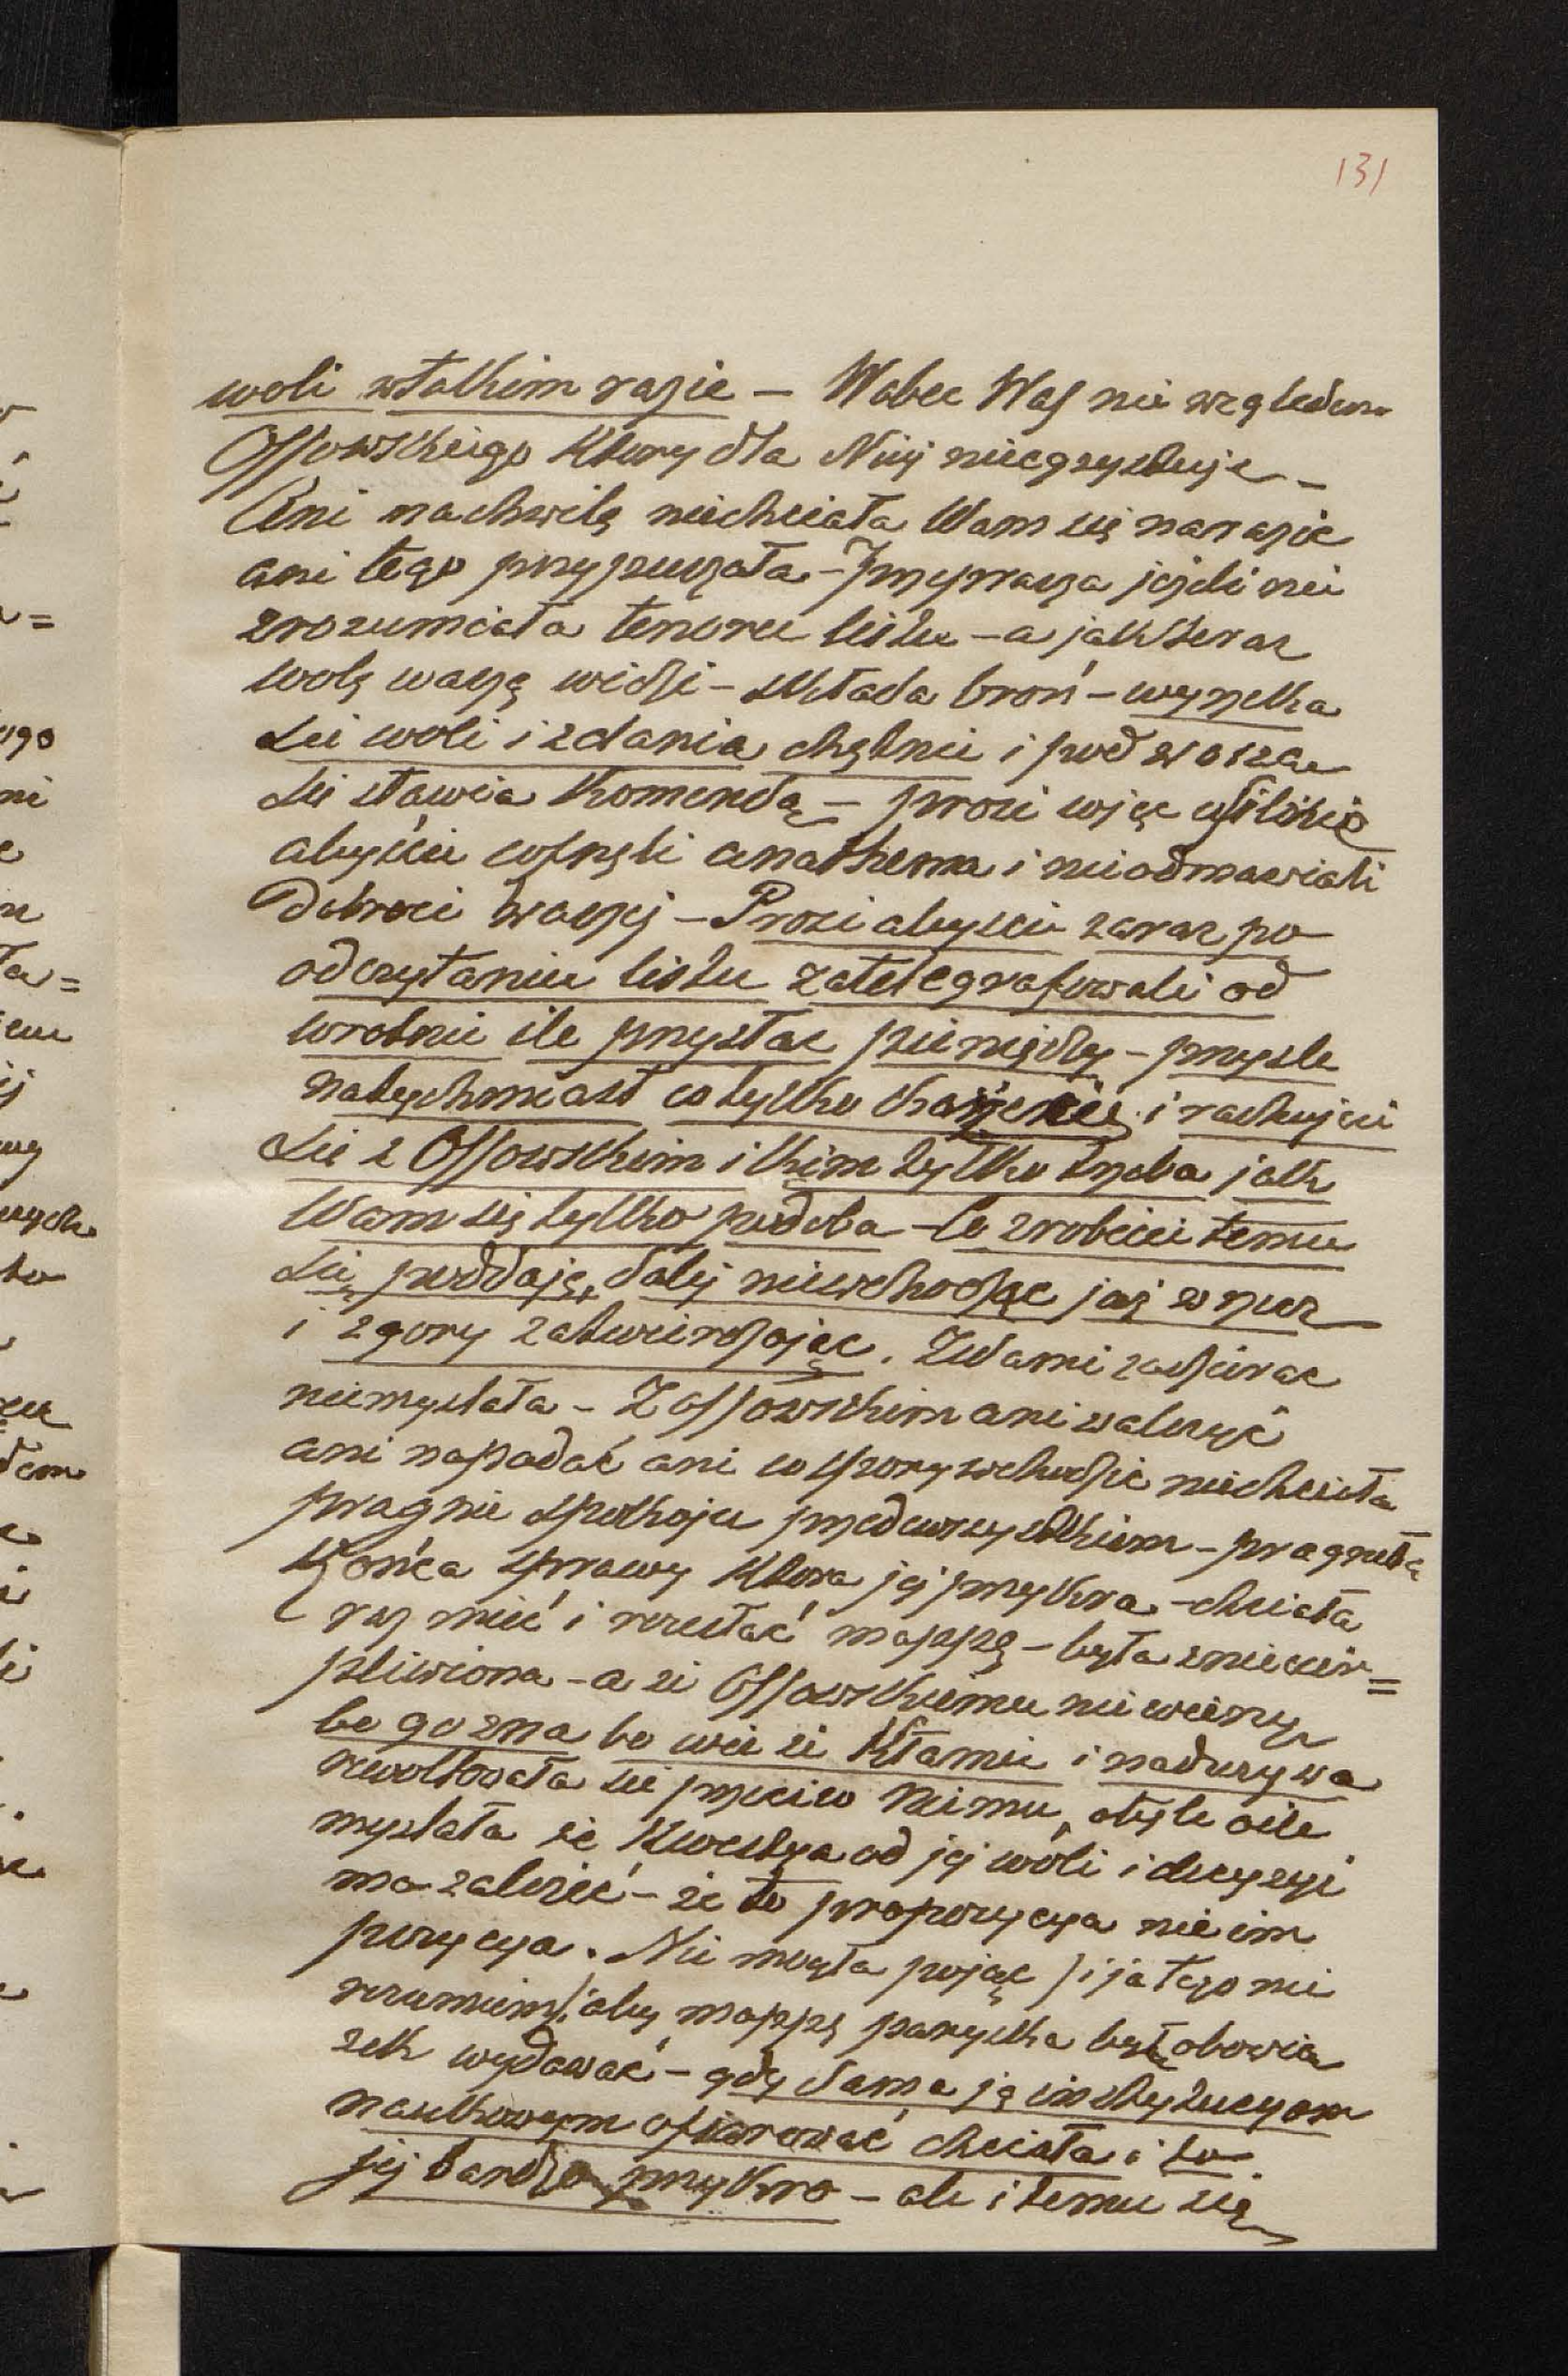 131
woli w takim razie – Wobec Was nie względem
Ossowskiego który dla Niej nieegzystuje –
Ani na chwilę niechciała Wam się narazic
ani tego przypuszczała – Przeprasza jeżeli nie
zrozumiała tenoru listu – a jak teraz
wolę waszą widzi – składa broń – wyrzeka
się woli i zdania chętnie i pod wasza
się stawia komendą – prosi więc usilnie
abyście cofnęli anathema i nieodmawiali
Dobroci waszej – Prosi abyscie zaraz po
odczytaniu listu zatelegrafowali od
wrotnie ile przysłac pieniędzy – przysle
natychmiast co tylko każecie i rachujcie
się z Ossowskim i kim tylko trzeba jak
Wam się tylko podoba – Co zrobicie temu
się poddaję, dalej niewchodząc już w rzecz
i zgory zatwierdzając. Z Wami zadzierac
niemyslała – Z Ossowskim ani walczyć
ani napadać ani w spory wchodzic niechciała
pragnie spokoju przedewszystkiem – pragnęła
końca sprawy która jej przykra – chciała
raz mieć i rozesłać mappę – była zniecier=
pliwiona – a że Ossowskiemu nie wierzy
bo go zna bo wie że kłamie i nadużywa
rewoltowała się przeciw Niemu, otyle oile
myslała że kwestya od jej woli i decyzyi
ma zależeć – że to propozycya nie im
pozycya. Nie mogła pojąc / i ja tego nie
rozumiem / aby mappę paryska był obowią
zek wydawać – gdy sama ją instytucyom
naukowym ofiarować chciała i to
jej bardzo przykro – ale i temu się